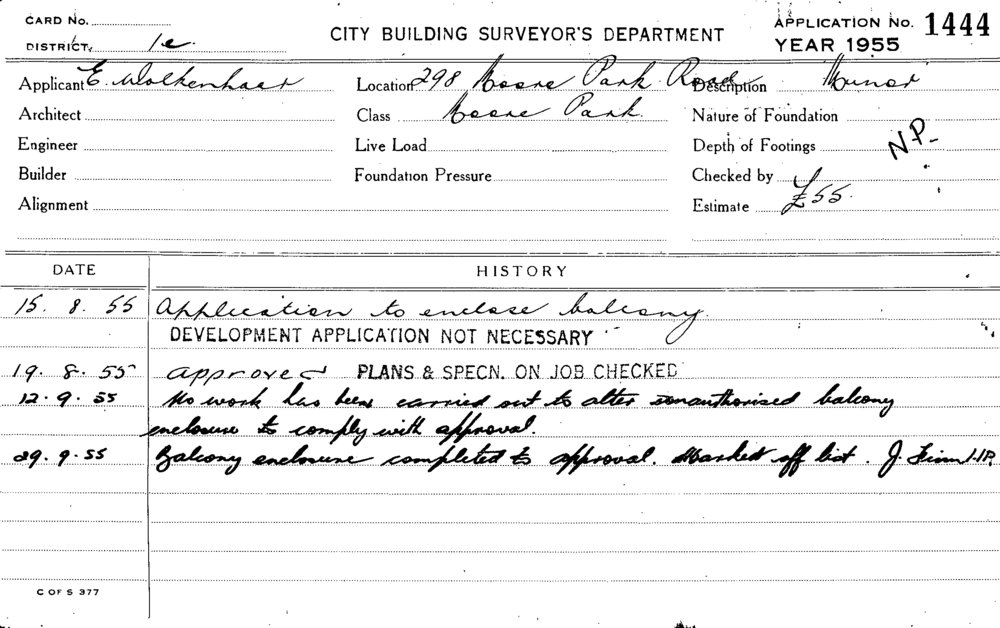 CARD No.
DISTRICT, 1c
CITY BUILDING SURVEYOR'S DEPARTMENT
APPLICATION No. 1444
YEAR 1955
Applicant E. Wolkenhaer
Location 298 Moore Park Road
Description Minor
Architect
Class Moore Park.
Nature of Foundation
Engineer
Live Load
Depth of Footings
N.P.
Builder
Foundation Pressure
Checked by
Alignment
Estimate £55.
DATE HISTORY
15. 8. 55 Application to enclose balcony.
DEVELOPMENT APPLICATION NOT NECESSARY
19. 8. 55 approved PLANS & SPECN. ON JOB CHECKED
12. 9. 55 No work has been carried out to alter unauthorised balcony
enclosure to comply with approval.
29. 9. 55 Balcony enclosure completed to approval. Marked off list. J.
C OF S 377